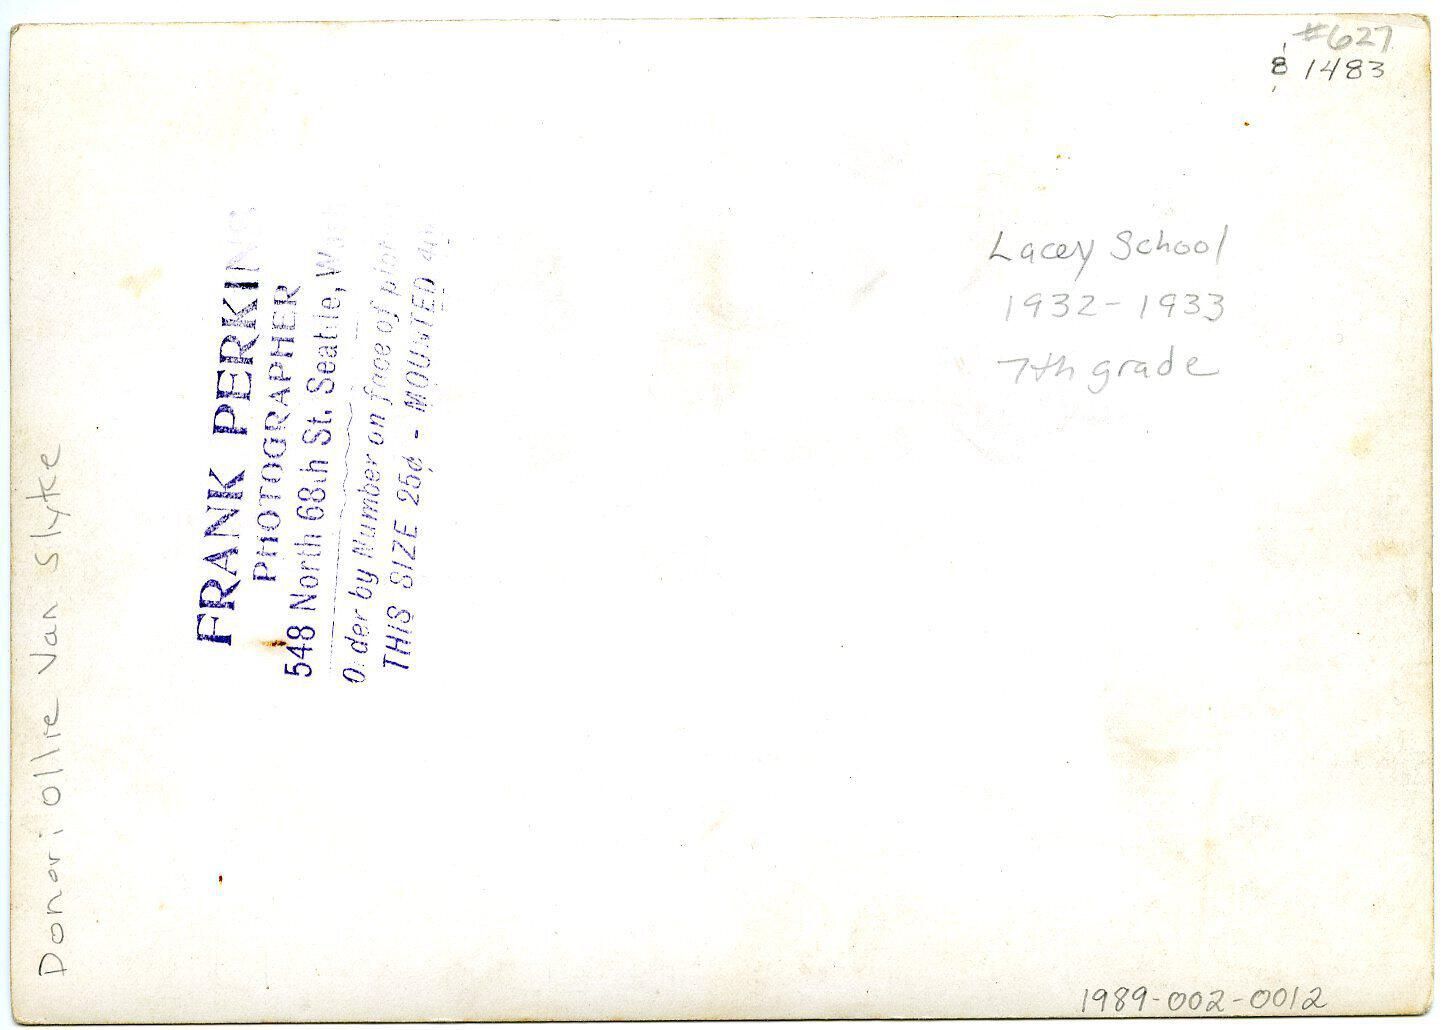 #627
& 1483
Lacey School
1932-1933
7th grade
FRANK PERKINS
PHOTOGRAPHER
548 North 68th St. Seattle,
Order by Number on face of
THIS SIZE 25¢ - MOUNTED
Donor: Ollie Van Slyke
1989-002-0012